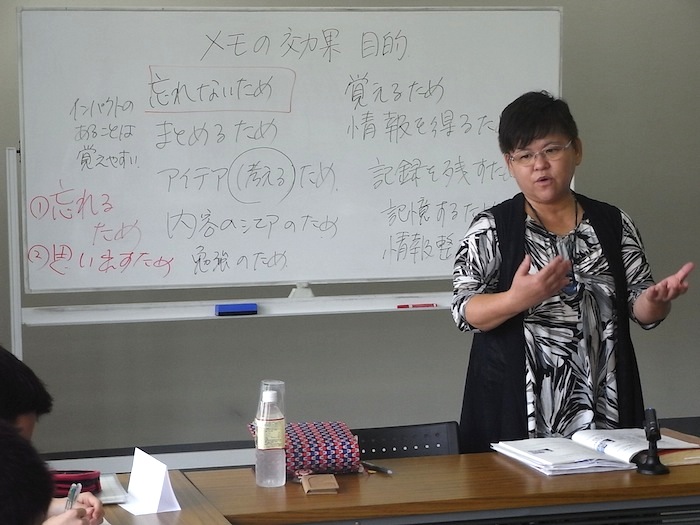 メモの効果 目的
忘れないため
まとめるため
アイデア(考える)ため
内容のシェアのため
勉強のため
覚えるため
情報を得るた
記録を残すた
記憶するた
情報整
インパクトの
あることは
覚えやすい
①忘れる
ため
②思いだすため